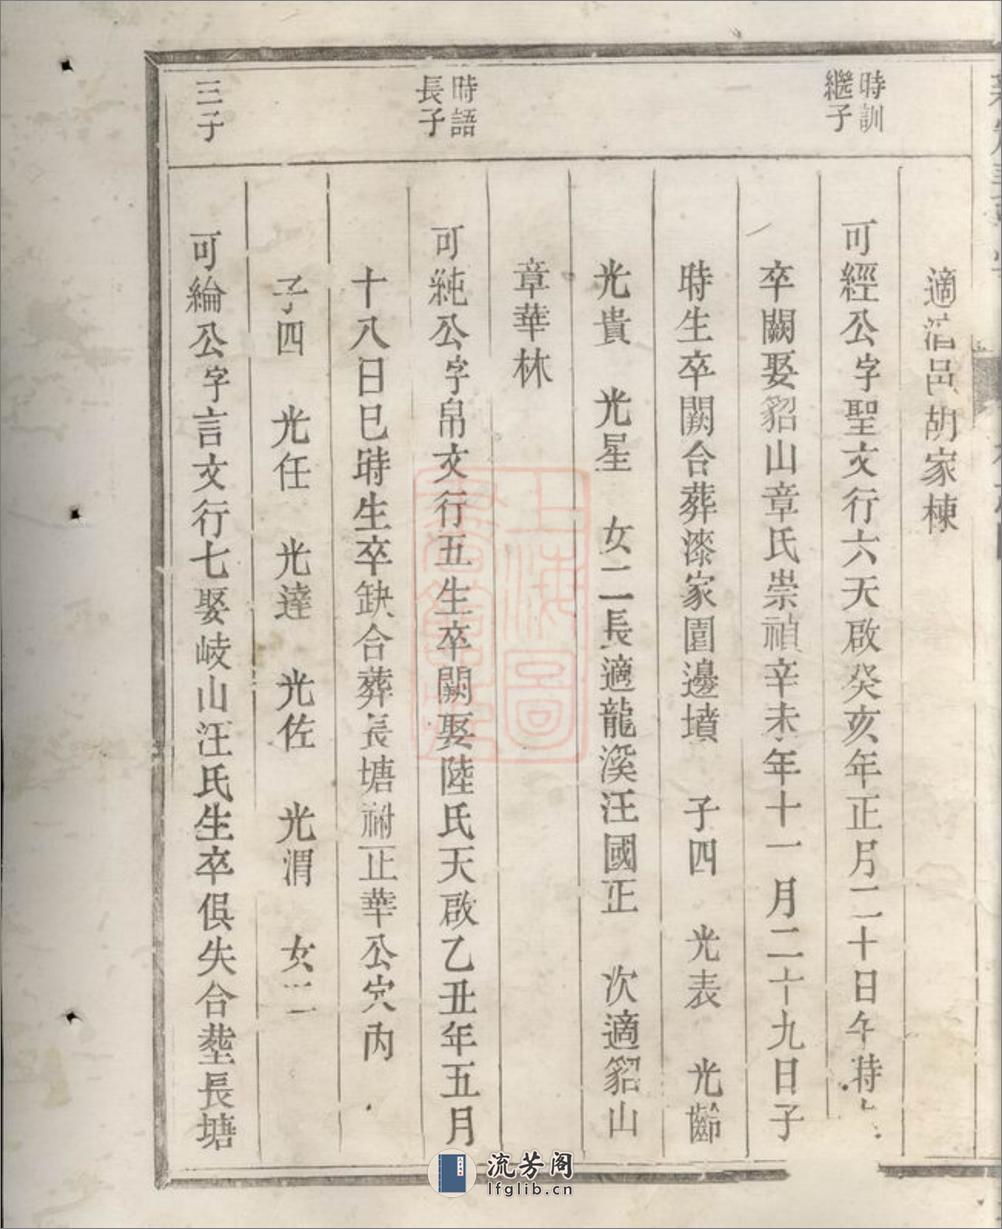 適邑胡家棟
時訓
繼子
可經公字聖文行六天啟癸亥年正月二十日午時
卒闕娶貂山章氏崇禎辛未年十一月二十九日子
時生卒闕合葬漆家園邊墳 子四 光表 光齡
光貴 光星 女二長適龍溪汪國正 次適貂山
章華林
時語
長子
可純公字帛文行五生卒闕娶陸氏天啟乙丑年五月
十八日巳時生卒缺合葬長塘祔正華公穴內
子四 光任 光達 光佐 光渭 女二
三子
可綸公字言文行七娶岐山汪氏生卒俱失合塟長塘
上海圖
書館藏
流芳阁
lfglib.cn